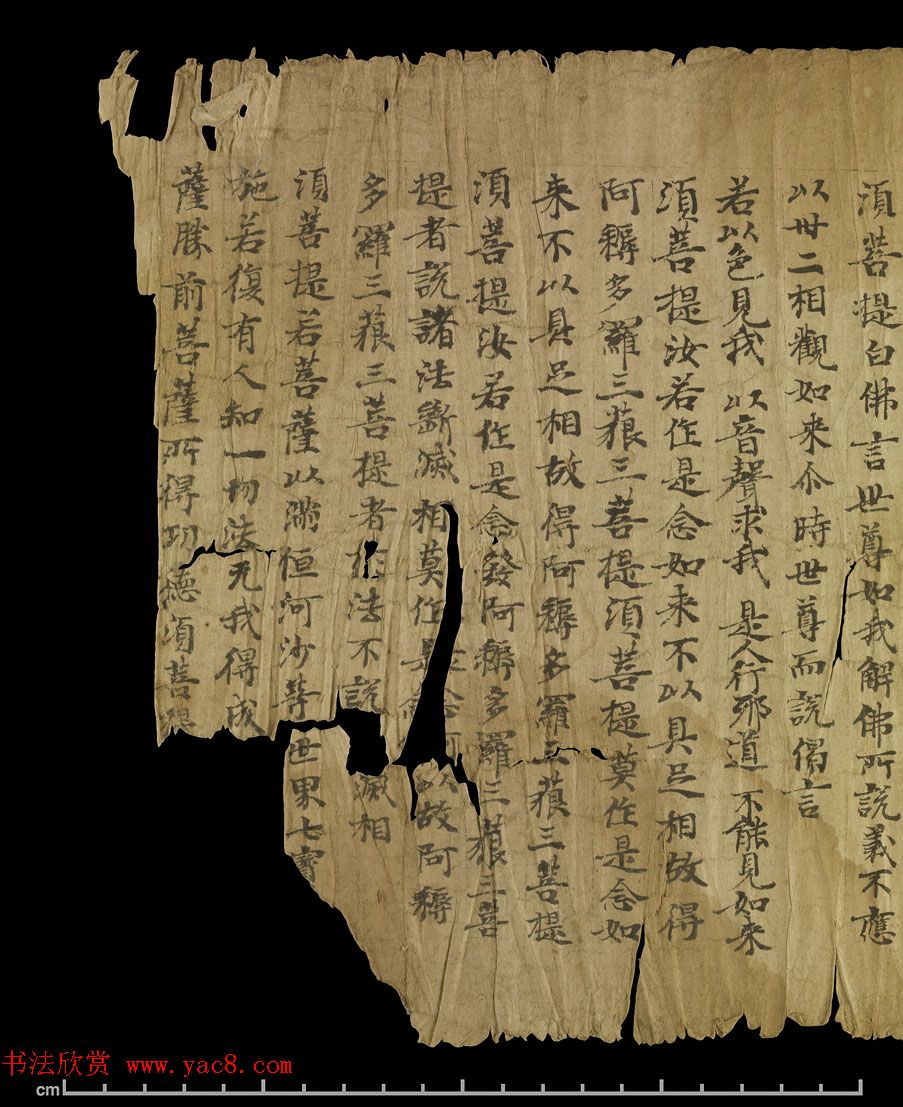 須菩提白佛言世尊如我解佛所説義不應
以丗二相觀如来尒時世尊而説偈言
若以色見我 以音聲求我 是人行邪道 不能見如来
須菩提汝若作是念如来不以具足相故得
阿耨多羅三藐三菩提須菩提莫作是念如
来不以具足相故得阿耨多羅三藐三菩提
須菩提汝若作是念發阿耨多羅三藐三菩
提者説諸法斷滅相莫作是念何以故阿耨
多羅三藐三菩提者於法不説滅相
須菩提若菩薩以滿恒河沙等世界七寶
施若復有人知一切法无我得成
薩勝前菩薩所得功德須菩提
书法欣赏 www.yac8.com
cm